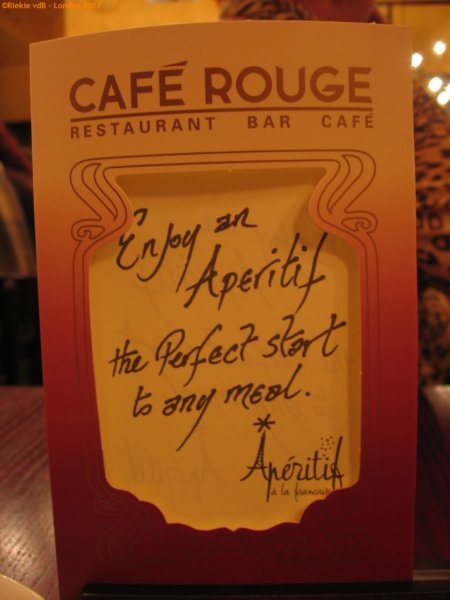 ©Riekie vdB - London 2007
CAFÉ ROUGE
RESTAURANT BAR CAFÉ
Enjoy an
Aperitif
the Perfect start
to any meal.
Apéritif
à la française